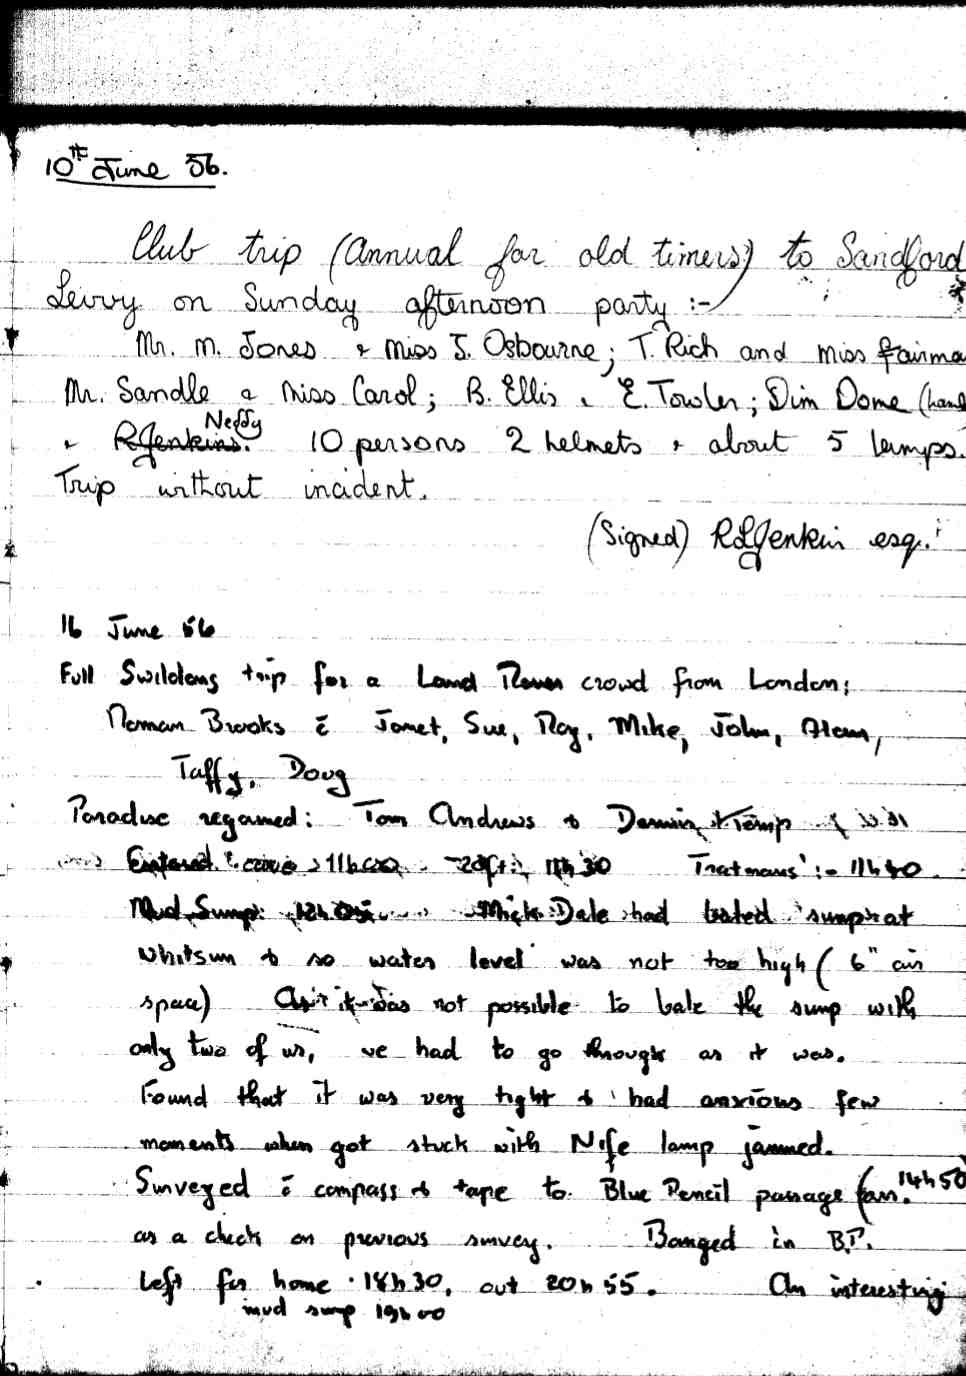 10TH June 56.
Club trip (Annual for old timers) to Sandford
Levvy on Sunday afternoon party :-
Mr. M. Jones & Miss J. Osbourne; T. Rich and Miss Fairma
Mr. Sandle & Miss Carol; B. Ellis & E. Towler; Dim Dome (hand
& RJenkins. Neddy 10 persons 2 helmets & about 5 lamps.
Trip without incident.
(Signed) RLJenkin esq.
16 June 56
Full Swildons trip for a Land Rover crowd from London;
Norman Brooks c̄ Janet, Sue, Roy, Mike, John, Alan,
Taffy, Doug
Paradise regained: Tom Andrews &
Entered cave 11h00 20ft: 11h30 Tratmans :- 11h40.
Mud Sump: 12h05 Mick Dale had bated sump at
Whitsun & so water level was not too high (6" air
space) As it was not possible to bale the sump with
only two of us, we had to go through as it was.
Found that it was very tight & had anxious few
moments when got stuck with Nife lamp jammed.
Surveyed c̄ compass & tape to Blue Pencil passage (arr. 14h50)
as a check on previous survey. Banged in B.P.
Left for home 18h30, out 20h55. An interesting
mud sump 19h00